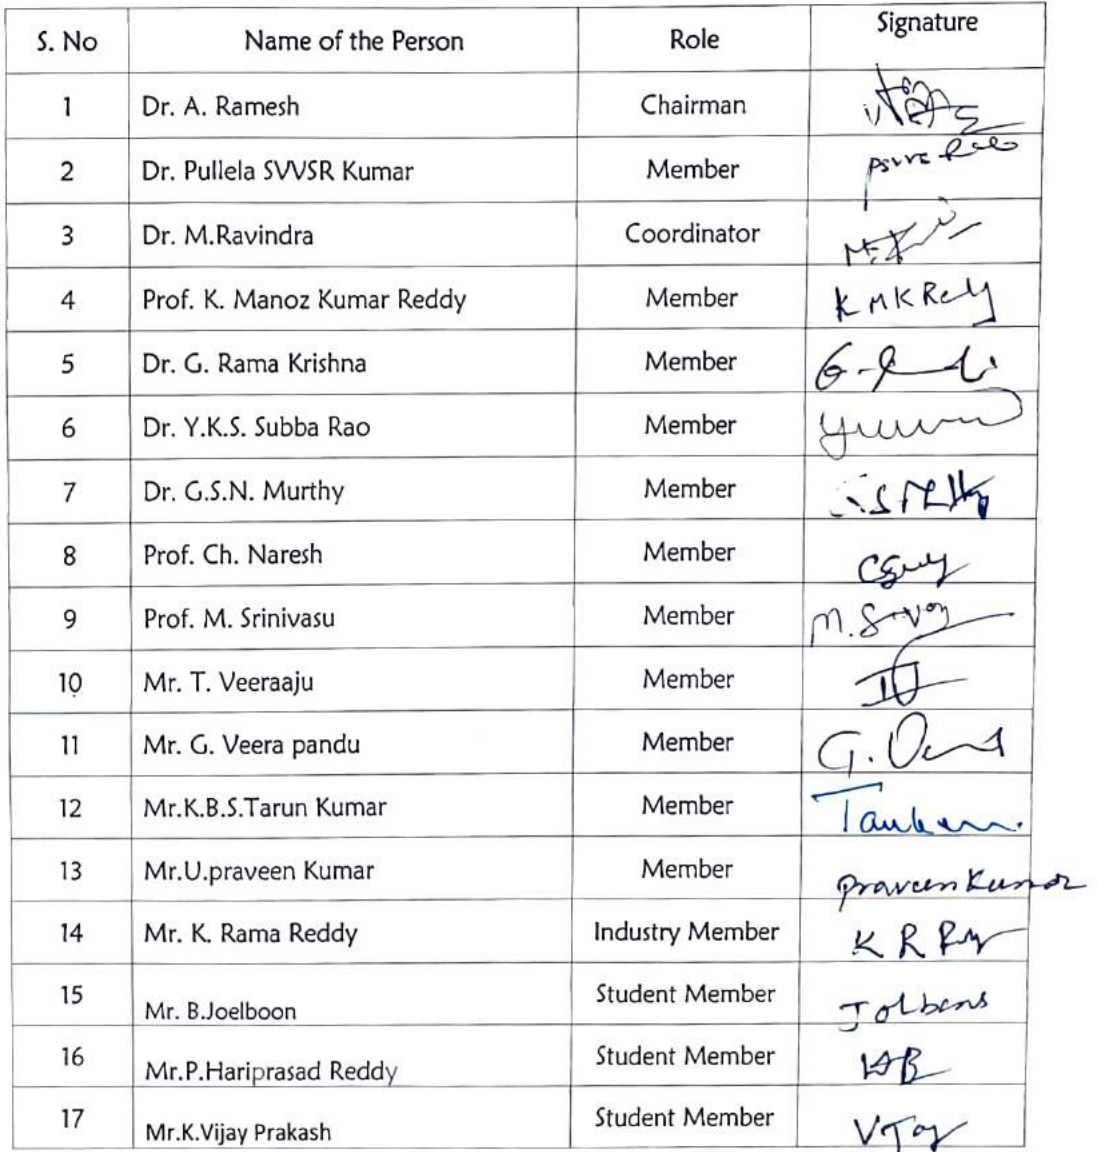 S. No Name of the Person Role Signature
1 Dr. A. Ramesh Chairman
2 Dr. Pullela SVVSR Kumar Member
3 Dr. M.Ravindra Coordinator
4 Prof. K. Manoz Kumar Reddy Member K M K Reddy
5 Dr. G. Rama Krishna Member
6 Dr. Y.K.S. Subba Rao Member
7 Dr. G.S.N. Murthy Member
8 Prof. Ch. Naresh Member
9 Prof. M. Srinivasu Member
10 Mr. T. Veeraaju Member
11 Mr. G. Veera pandu Member
12 Mr.K.B.S.Tarun Kumar Member
13 Mr.U.praveen Kumar Member Praveen Kumar
14 Mr. K. Rama Reddy Industry Member
15 Mr. B.Joelboon Student Member
16 Mr.P.Hariprasad Reddy Student Member
17 Mr.K.Vijay Prakash Student Member